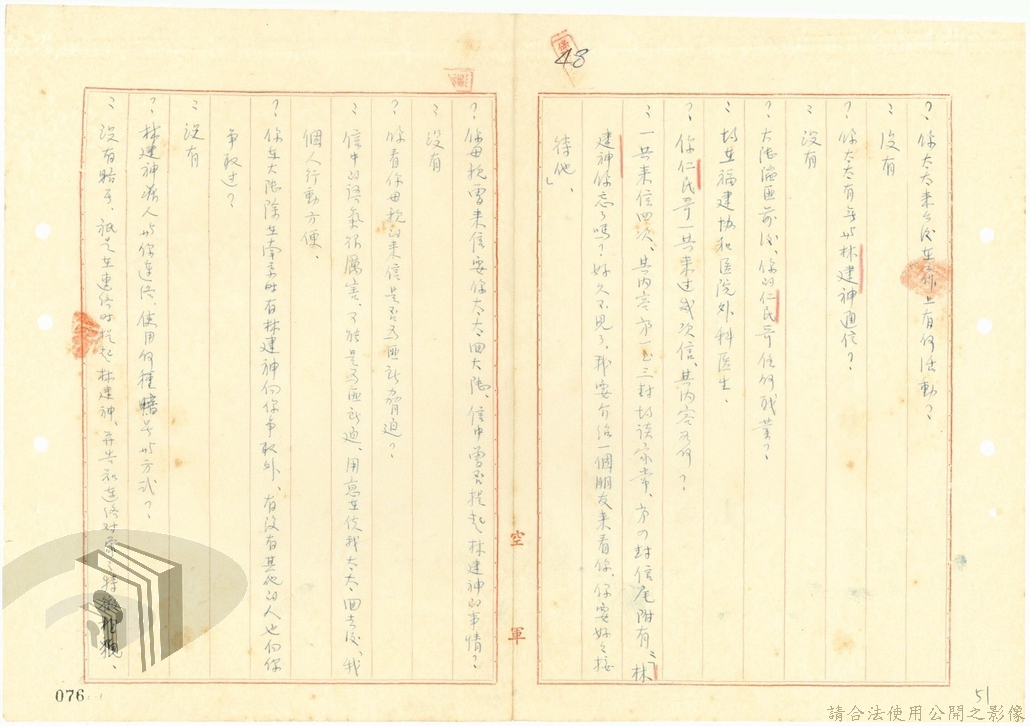 48
? 你太太來台後在工作上有何活動?
: 沒有
? 你太太有無與林建神通信?
: 沒有
? 大陸淪匪前後、你的仁民哥任何職業?
: 均在福建协和医院外科医生.
? 你仁民哥一共來过幾次信、其內容為何?
: 一共來信四次、其內容方一至三封均談家常、方四封信尾附有:「林
建神你忘了嗎?好久不見了、我要介紹一個朋友來看你、你要好好接
待他、」
空軍
? 你母親曾來信、要你太太回大陸、信中曾否提起林建神的事情?
: 沒有
? 你看你母親的來信是否為匪所脅迫?
: 信中的語氣很厲害、可能是為匪所迫、用意在使我太太回去後、我
個人行動方便、
? 你在大陸除在南京时有林建神向你爭取外、有沒有其他的人也向你
爭取过?
: 沒有
? 林建神派人與你連絡、使用何種暗号與方式?
: 沒有暗号、祇是在連絡时提起林建神、并告知連絡对象之特
076
51
請合法使用公開之影像